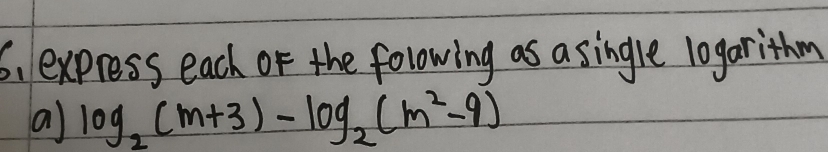 6. express each of the folowing as a single logarithm
a) log₂ (m+3) - log₂ (m²-9)